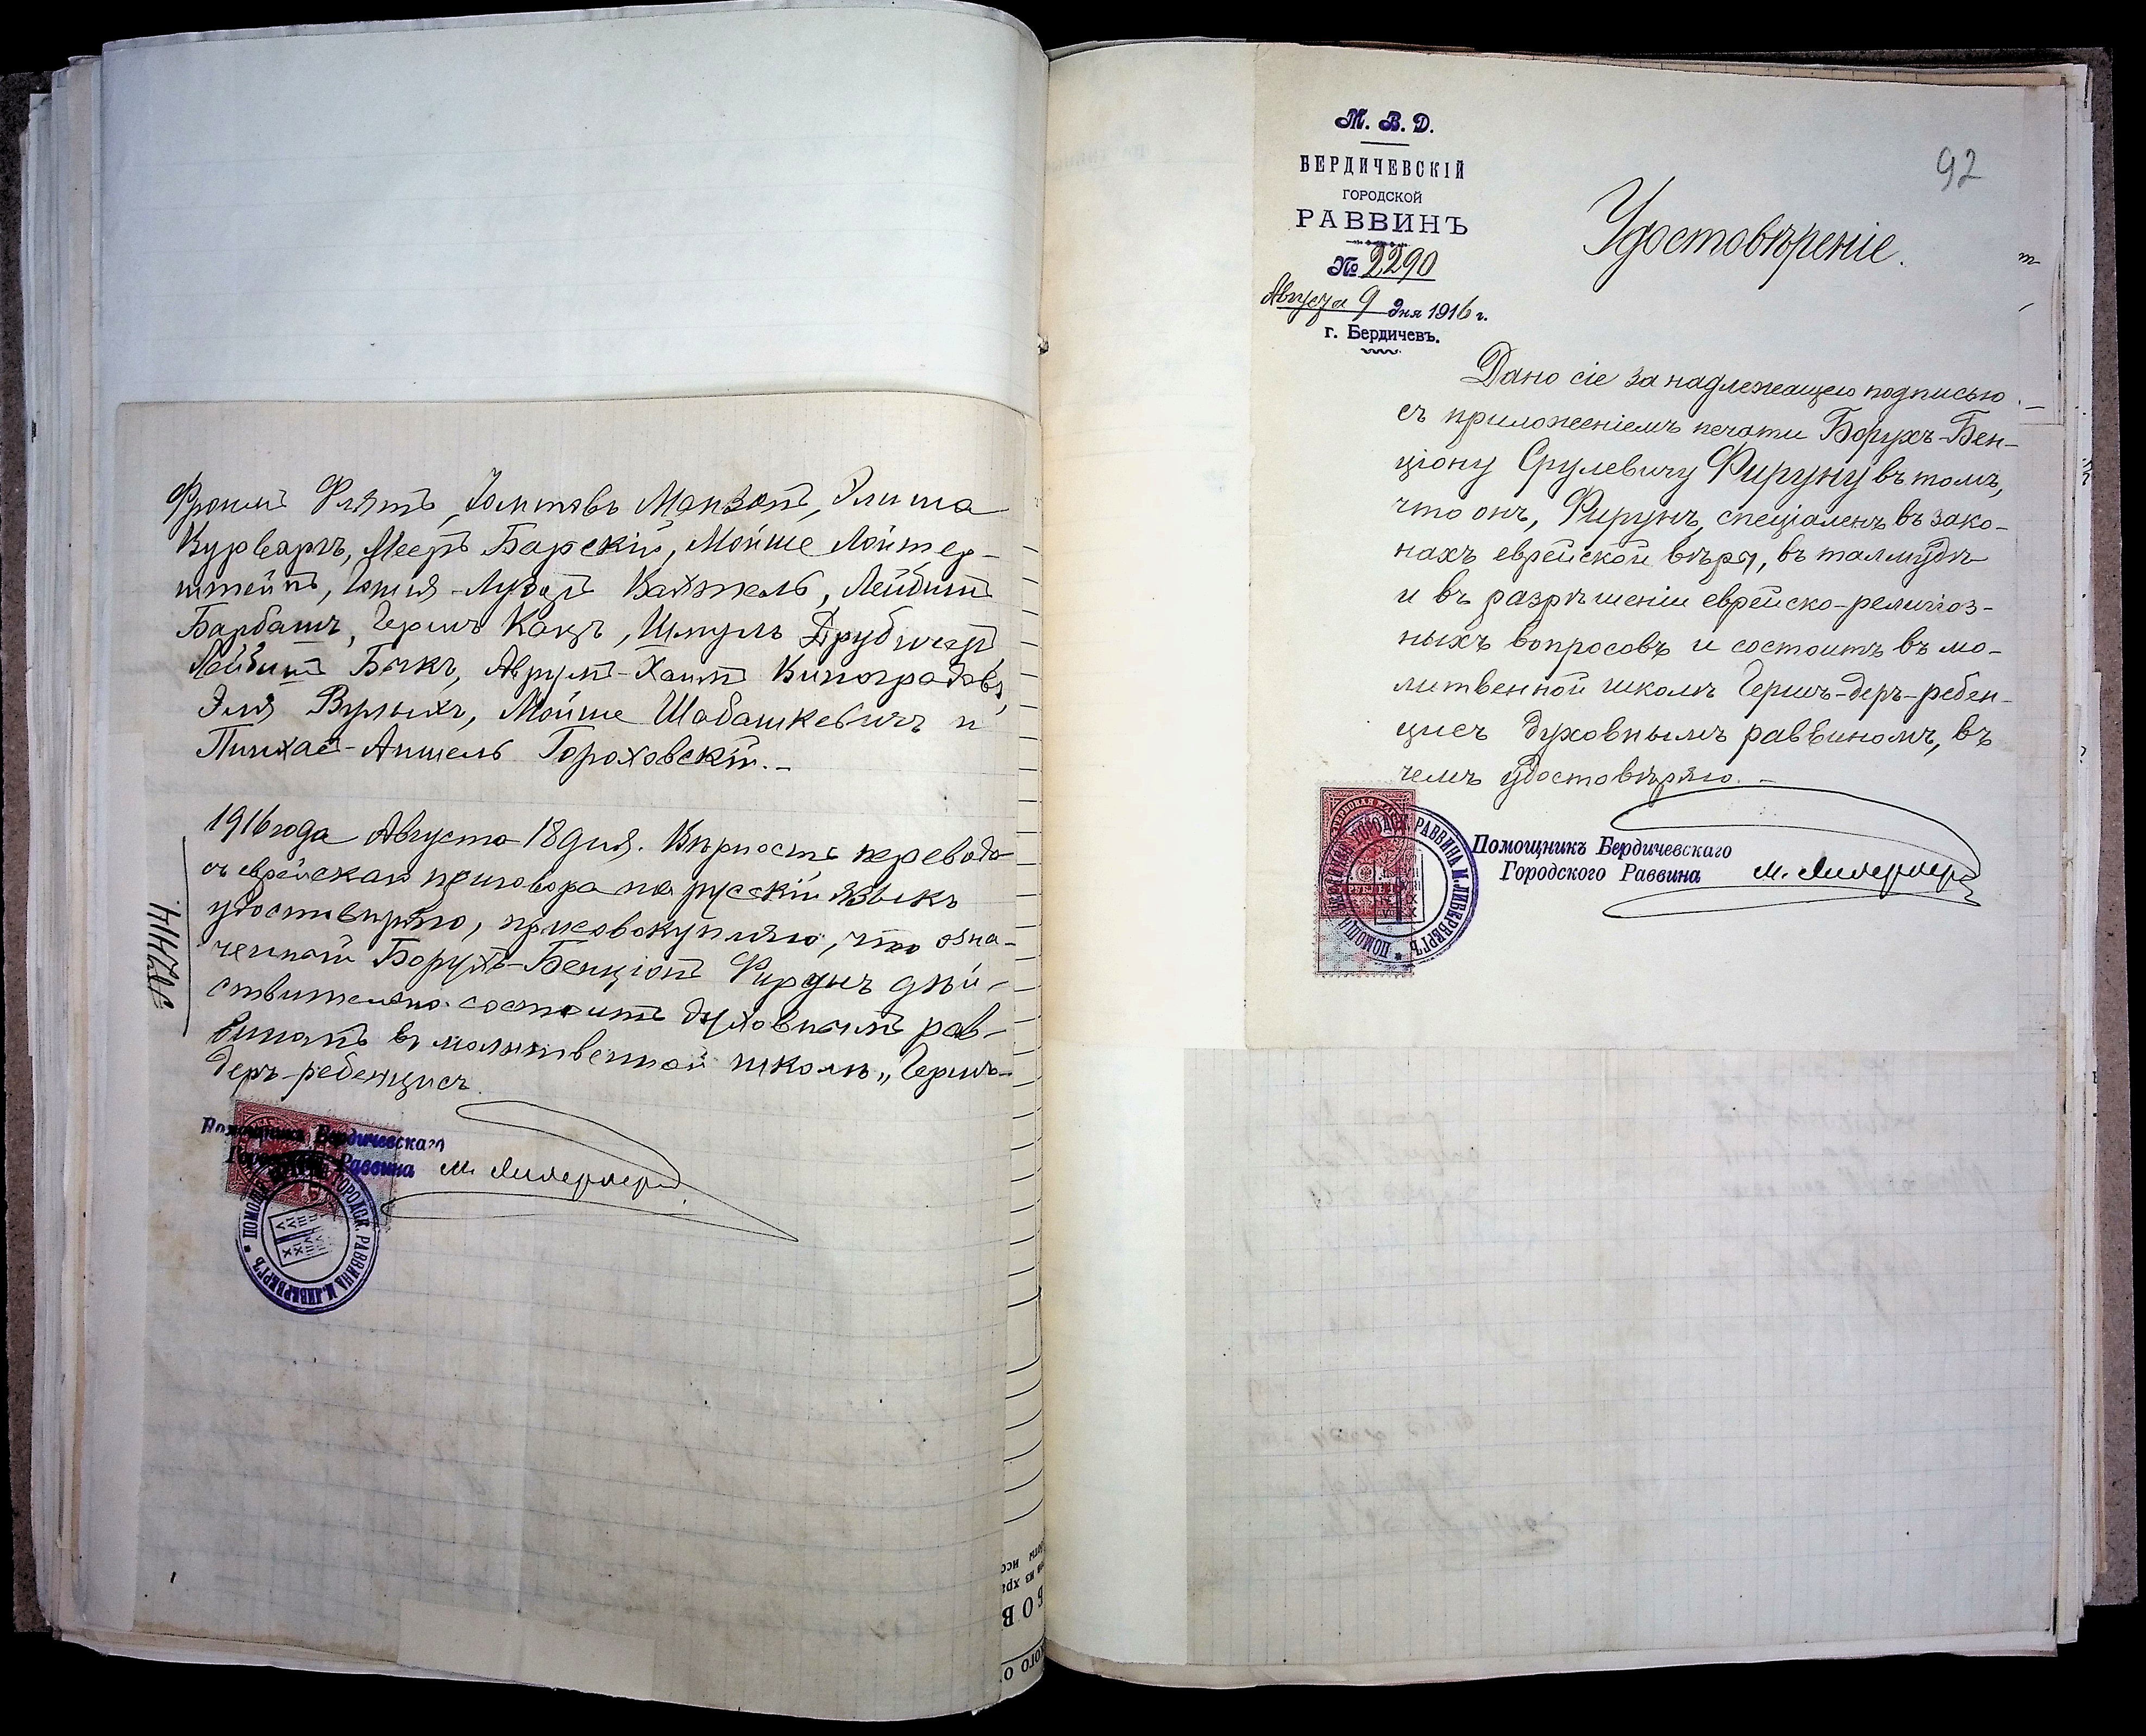 Фроимъ Флятъ, Іомтовъ Манзонъ, Элиша
Курваргъ, Мееръ Барскій, Мойше Лойтер-
штейнъ, Лузаръ Лейбишъ
Барбашъ, Гершъ Кацъ, Шмуль Трубичеръ
Лейбишъ Быкъ, Аврумъ-Хаимъ Виноградовъ,
Эля Мойше Шабашкевичъ и
Пинхас-Аншель Гороховскій.-
1916 года Августа 18 дня. Вѣрность перевода
съ еврейскаго приговора на русскій языкъ
удостовѣряю, присовокупляю, что озна-
ченный Борухъ-Бенціонъ Фирунъ дѣй-
ствительно состоитъ духовнымъ рав-
виномъ въ молитвенной школѣ „Гершъ-
деръ-ребенцисъ
Помощникъ Бердичевскаго
Городского Раввина М. Ливерберг
ПОМОЩН. ГОРОДСК. РАВВИНА М. ЛИВЕРБЕРГЪ
92
М. В. Д.
БЕРДИЧЕВСКІЙ
ГОРОДСКОЙ
РАВВИНЪ
№ 2290
Августа 9 дня 1916 г.
г. Бердичевъ.
Удостовѣреніе.
Дано сіе за надлежащею подписью
съ приложеніемъ печати Борухъ-Бен-
ціону Срулевичу Фируну въ томъ,
что онъ, Фирунъ, спеціаленъ въ зако-
нахъ еврейской вѣры, въ талмудѣ
и въ разрѣшеніи еврейско-религіоз-
ныхъ вопросовъ и состоитъ въ мо-
литвенной школѣ Гершъ-деръ-ребен-
цисъ духовнымъ раввиномъ, въ
чемъ удостовѣряю.-
Помощникъ Бердичевскаго
Городского Раввина М. Ливерберг
ПОМОЩН. БЕРДИЧЕВ. ГОРОДСК. РАВВИНА М. ЛИВЕРБЕРГЪ